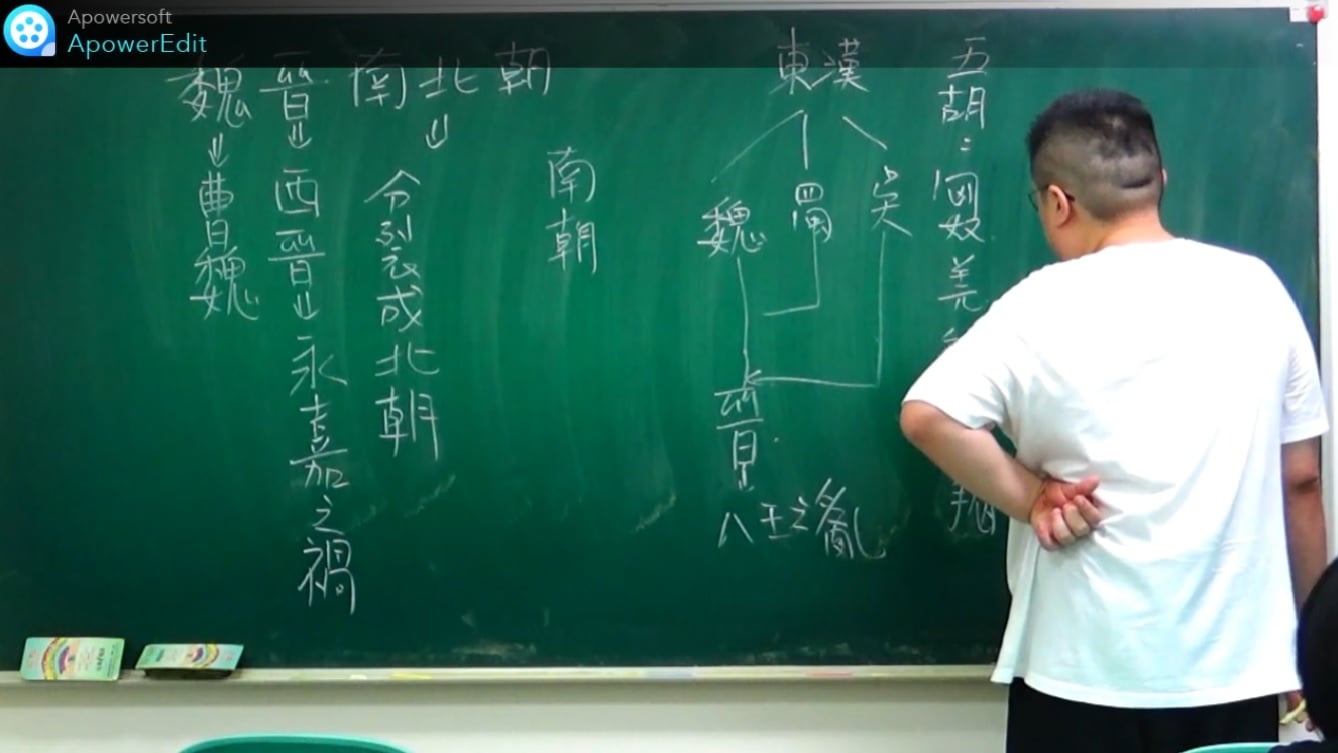 Apowersoft
ApowerEdit
魏晉南北朝
曹魏
西晉
永嘉之禍
分裂成北朝
南朝
東漢
魏 蜀 吳
晉
八王之亂
五胡：匈奴 羌